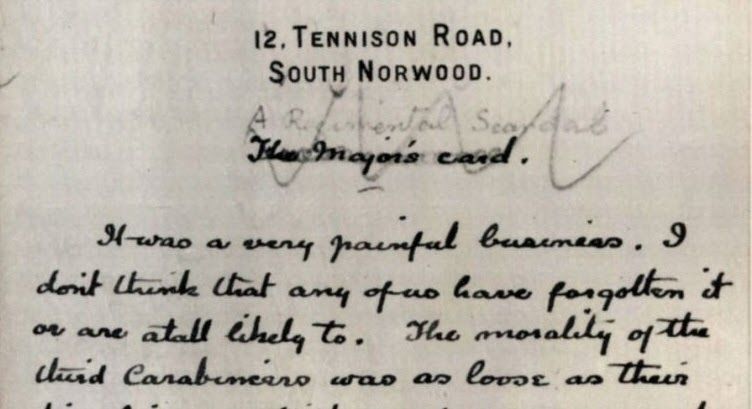 12, TENNISON ROAD,
SOUTH NORWOOD.
A Regimental Scandal
The Major's card.
It was a very painful business. I
don't think that any of us have forgotten it
or are at all likely to. The morality of the
third Carabineers was as loose as their